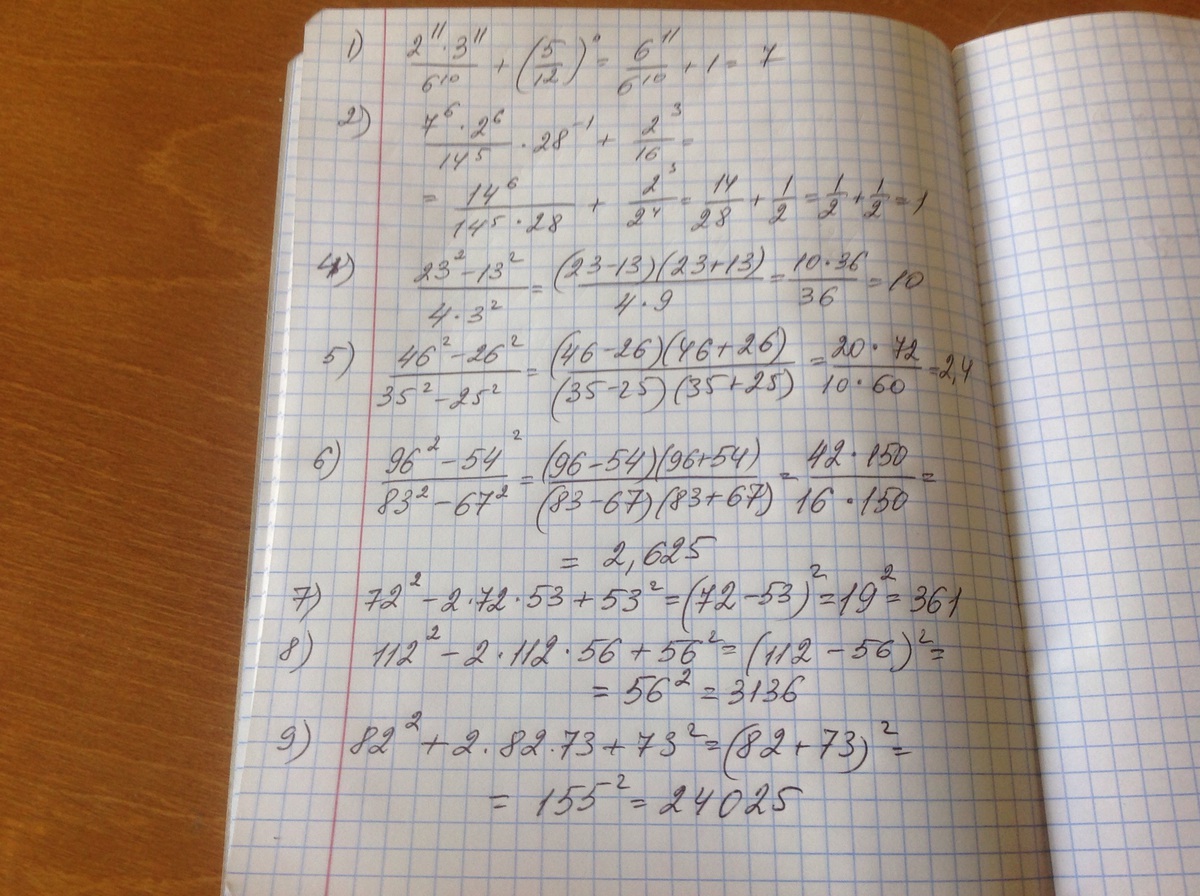 1) (2¹¹·3¹¹)/6¹⁰ + (5/12)⁰ = 6¹¹/6¹⁰ + 1 = 7
2) (7⁶·2⁶)/14⁵ · 28⁻¹ + 2³/16 =
= 14⁶/(14⁵·28) + 2³/2⁴ = 14/28 + 1/2 = 1/2 + 1/2 = 1
4) (23²-13²)/(4·3²) = ((23-13)(23+13))/(4·9) = (10·36)/36 = 10
5) (46²-26²)/(35²-25²) = ((46-26)(46+26))/((35-25)(35+25)) = (20·72)/(10·60) = 2,4
6) (96²-54²)/(83²-67²) = ((96-54)(96+54))/((83-67)(83+67)) = (42·150)/(16·150) =
= 2,625
7) 72²-2·72·53+53² = (72-53)² = 19² = 361
8) 112²-2·112·56+56² = (112-56)² =
= 56² = 3136
9) 82²+2·82·73+73² = (82+73)² =
= 155² = 24025